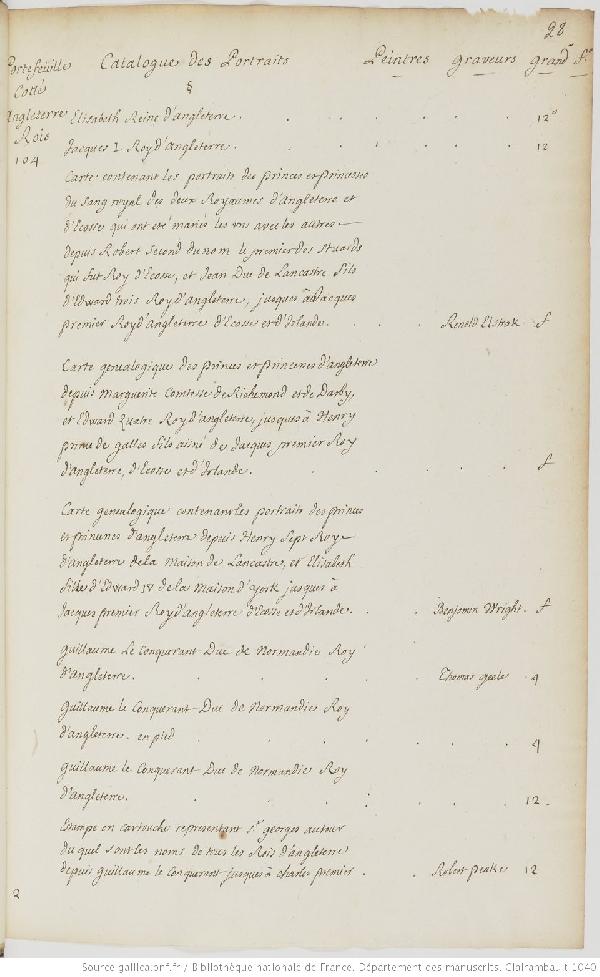 28
Portefeuille Catalogue des Portraits Peintres graveurs grandr
Cotté
§
Angleterre
Elisabeth Reine d'angleterre. 12°
Rois
Jacques I. Roy d'Angleterre. 12
104
Carte contenant les portraits des princes et princesses
du sang royal des deux Royaumes d'Angleterre et
d'Ecosse qui ont été mariés les uns avec les autres
depuis Robert second du nom le premier des stuards
qui fut Roy d'Ecosse, et Jean Duc de Lancastre fils
d'Edward trois Roy d'angleterre, jusques à Jacques
premier Roy d'angleterre d'Ecosse et d'Irlande. Renold Elstrak f
Carte genealogique des princes et princesses d'angleterre
depuis Marguerite Comtesse de Richemond et de Darby,
et Edward Quatre Roy d'angleterre, jusques à Henry
prince de galles fils ainé de Jacques premier Roy
d'angleterre, d'Ecosse et d'Irlande. f
Carte genealogique contenant les portraits des princes
et princesses d'angleterre depuis Henry Sept Roy
d'angleterre de la Maison de Lancastre, et Elisabeth
fille d'Edward IV de la Maison d'york jusques à
Jacques premier Roy d'angleterre d'Ecosse et d'Irlande. Benjamin Wright. f
Guillaume Le Conquerant Duc de Normandie Roy
d'angleterre. Thomas geele 4
Guillaume le Conquerant Duc de Normandie Roy
d'angleterre. en pied 4
Guillaume le Conquerant Duc de Normandie Roy
d'Angleterre. 12
Estampe en cartouche representant St. georges autour
du quel sont les noms de tous les Rois d'angleterre
depuis guillaume le Conquerant jusques à charles premier Robert peake 12
2
Source gallica.bnf.fr / Bibliothèque nationale de France. Département des manuscrits. Clairambault 1040